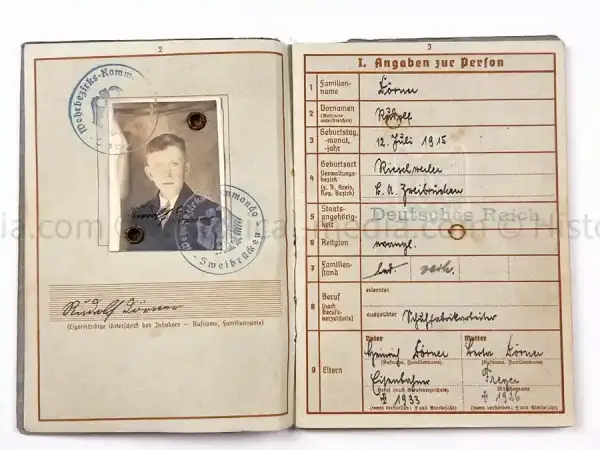 2
Wehrbezirks-Kommando
Wehrbezirks-Kommando
Zweibrücken
Rudolf Dörner
(Eigenhändige Unterschrift des Inhabers — Rufname, Familienname)
3
I. Angaben zur Person
1 Familienname Dörner
2 Vornamen (Rufname unterstreichen) Rudolf
3 Geburtstag, -monat, -jahr 12. Juli 1915
4 Geburtsort Rieschweiler
Verwaltungsbezirk (z. B. Kreis, Reg. Bezirk) B. A. Zweibrücken
5 Staatsangehörigkeit Deutsches Reich
6 Religion evangl.
7 Familienstand led. verh.
8 Beruf (nach Berufsverzeichnis) erlernter
ausgeübter Schuhfabrikarbeiter
9 Eltern
Vater Mutter
Heinrich Dörner Dörner
(Rufname, Familienname) (Rufname, Familienname)
Eisenbahner
(Beruf (nach Berufsverzeichnis)) (Mädchenname)
1933 1926
(wenn verstorben: † und Sterbejahr) (wenn verstorben: † und Sterbejahr)